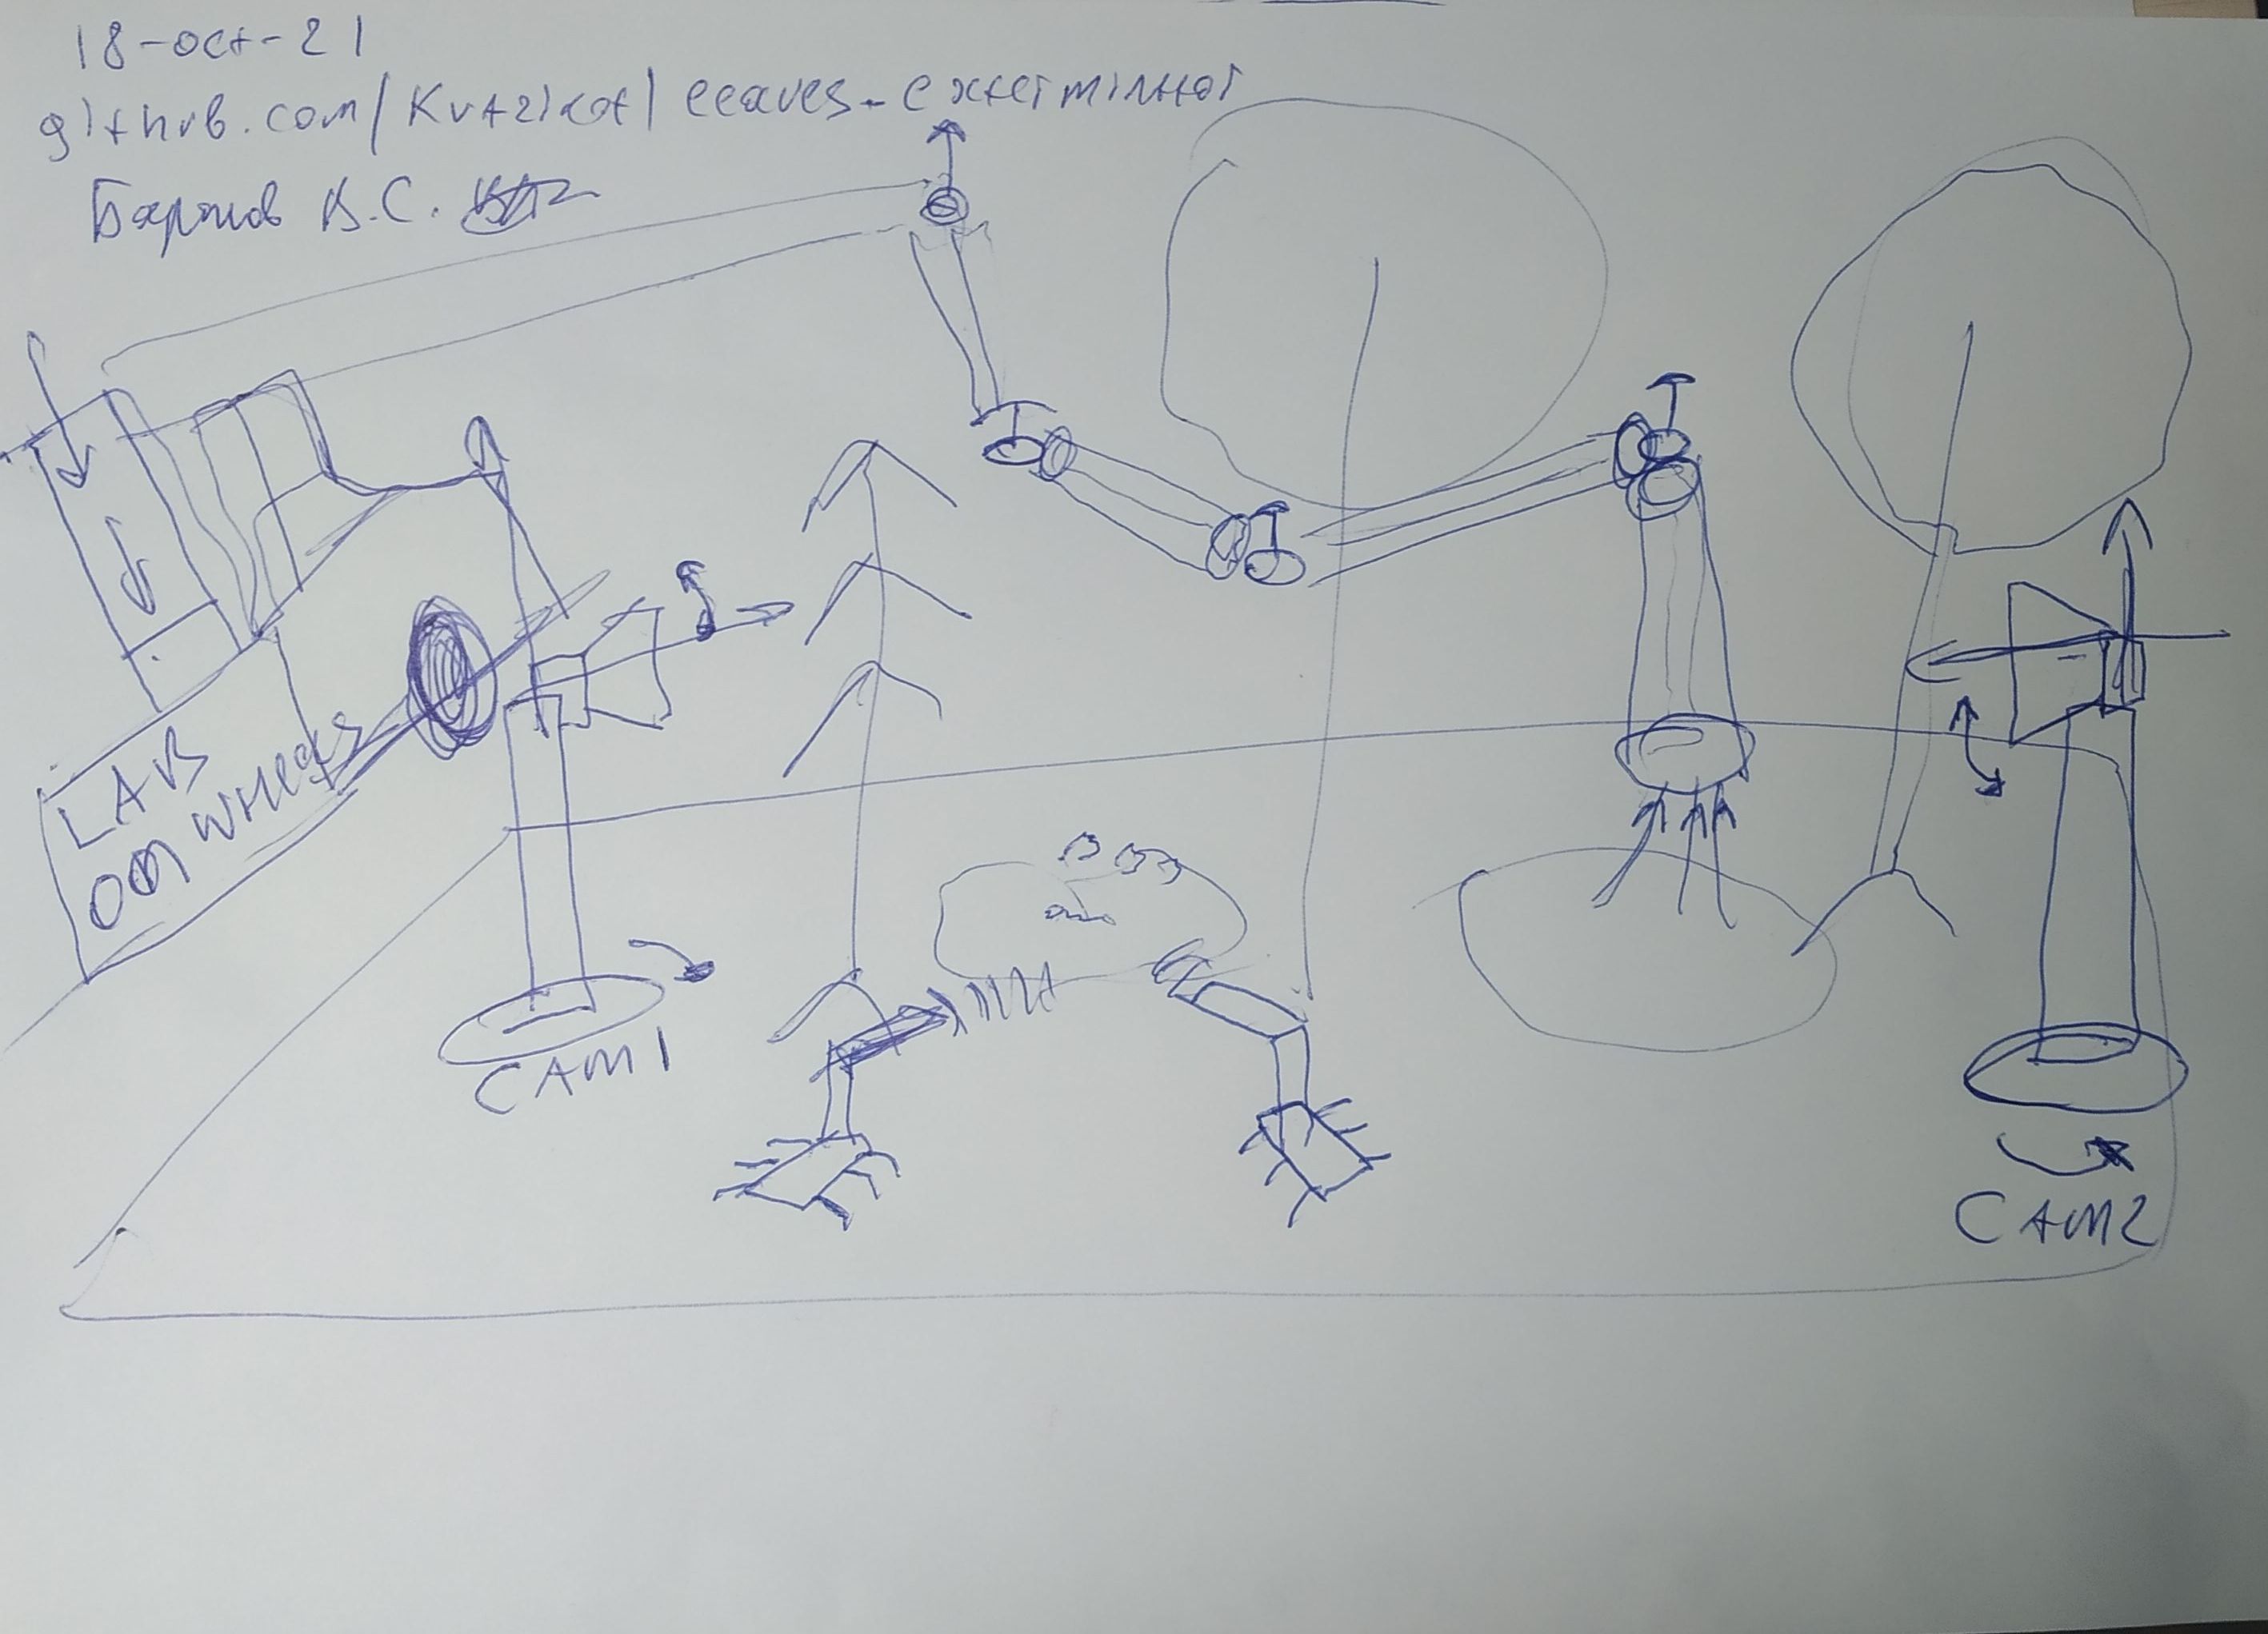 18-oct-21
github.com/Kvtzikot/leaves-extermin
В.С.
LAB
ON WHEELS
CAM1
CAM2